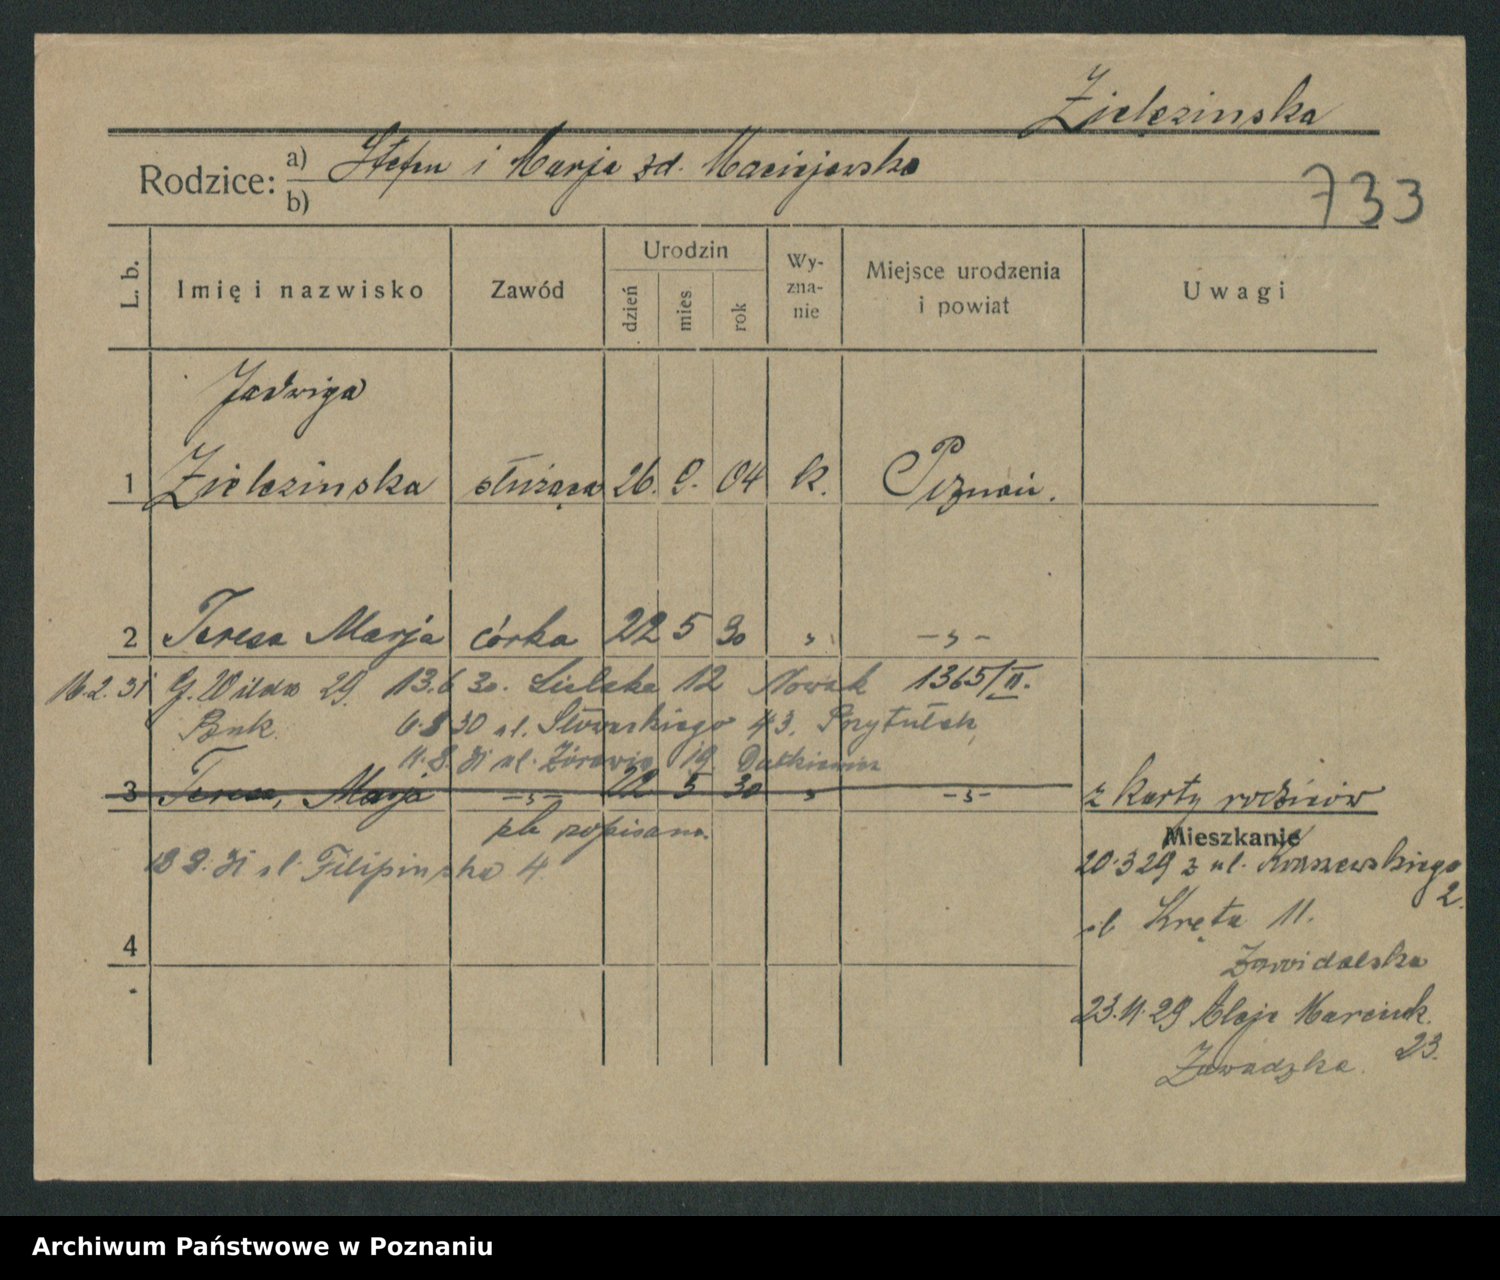 Zielezinska
Rodzice: a) Stefan i Marja zd. Maciejewska
b)
733
L. b.
Imię i nazwisko
Zawód
Urodzin
dzień
mies.
rok
Wy-
zna-
nie
Miejsce urodzenia
i powiat
Uwagi
Jadwiga
1 Zielezinska służąca 26. 9. 04 k. Poznań.
2 Teresa Marja córka 22 5 30 " -"-
16.2.31 G. Wilda 29. 13.6 30. Sielska 12 Nowak 1365/II.
Bnk. 6.8 30 ul. Słowackiego 43. Przytułek
11.8.31 ul. Żórawia 19.
3 Teresa, Marja -"- 22 5 30 " -"- z karty rodziców
Mieszkanie
ul. Filipinska 4.
20.3 29 z ul. Kraszewskiego
2.
4
ul Kręta 11.
23.11.29 Aleje Marcink.
23.
Zawadzka.